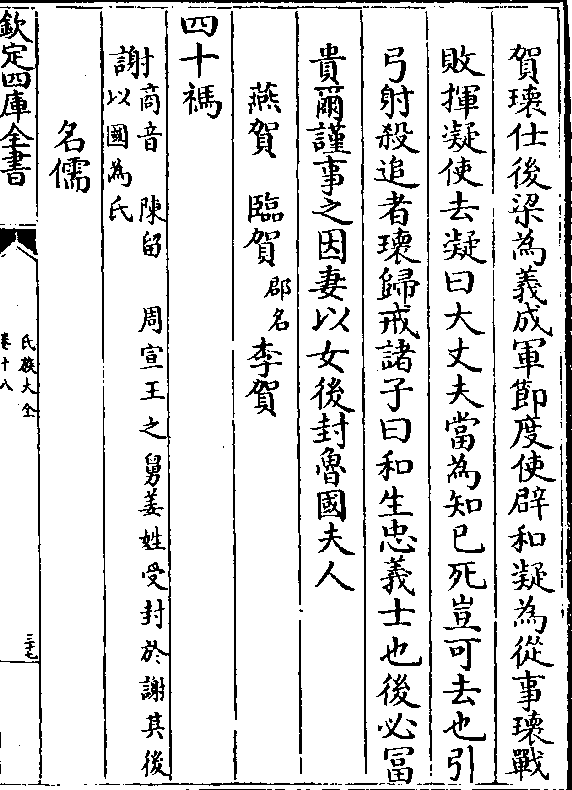 賀瓌仕後梁為義成軍節度使辟和凝為從事瓌戰
敗揮凝使去凝曰大丈夫當為知已死豈可去也引
弓射殺追者瓌歸戒諸子曰和生忠義士也後必冨
貴爾謹事之因妻以女後封魯國夫人
燕賀　臨賀郡名　李賀
四十禡
謝商音　陳留　周宣王之舅姜姓受封於謝其後
以國為氏
名儒
欽定四庫全書
氏族大全
卷十八
三十七